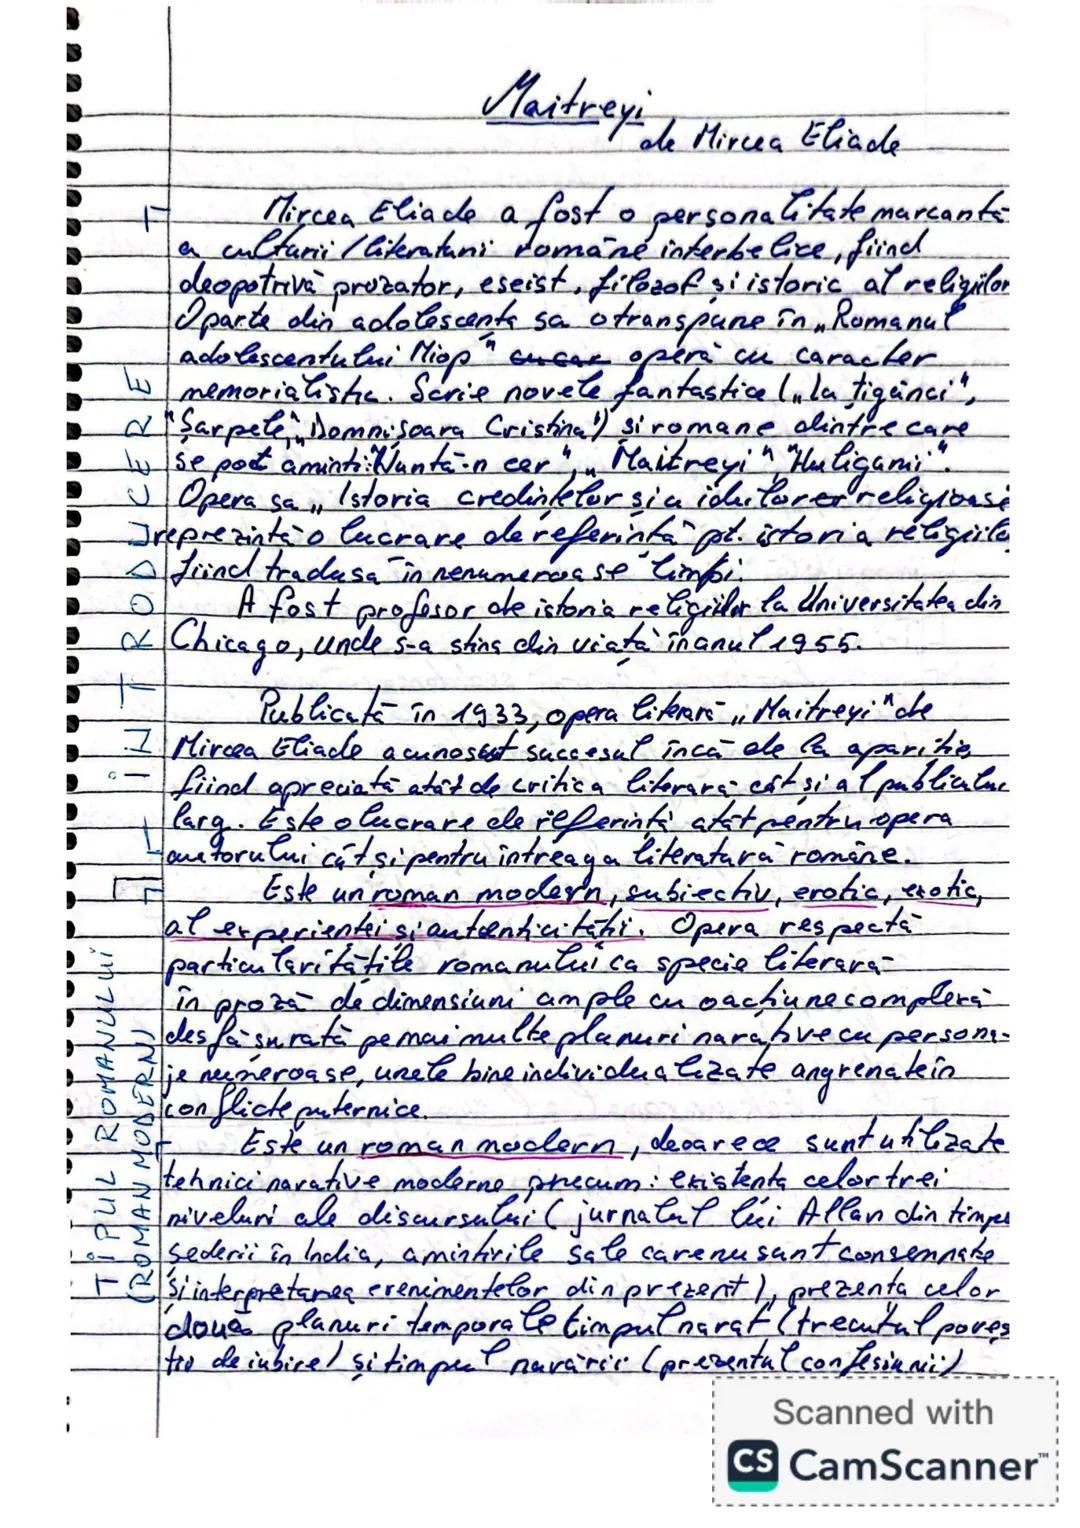 Maitreyi
de Mircea Eliade
Mircea Eliade a fost o personalitate marcantă
a culturii/literaturii române interbelice, fiind
deopotrivă prozator, eseist, filozof și istoric al religiilor
O parte din adolescența sa o transpune în „Romanul
adolescentului Miop" operă cu caracter
memorialistic. Scrie novele fantastice („la țigănci",
"Șarpele", "Domnișoara Cristina") și romane dintre care
se pot aminti: "Nuntă-n cer", „Maitreyi", "Huliganii".
Opera sa „Istoria credințelor și a ideilor religioase
reprezintă o lucrare de referință pt. istoria religiilo
fiind tradusă în nenumeroase limbi.
A fost profesor de istoria religiilor la Universitatea din
Chicago, unde s-a stins din viață în anul 1955.
Publicată în 1933, opera literară „Maitreyi" de
Mircea Eliade a cunoscut succesul încă de la apariție,
fiind apreciată atât de critica literară cât și al publicului
larg. Este o lucrare de referință atât pentru opera
autorului cât și pentru întreaga literatură române.
Este un roman modern, subiectiv, erotic, exotic,
al experienței și autenticității. Opera respectă
particularitățile romanului ca specie literară
în proză de dimensiuni ample cu o acțiune complexă
desfășurată pe mai multe planuri narative cu persona-
je numeroase, unele bine individualizate angrenate în
conflicte puternice.
Este un roman modern, deoarece sunt utilizate
tehnici narative moderne precum: existența celor trei
niveluri ale discursului (jurnalul lui Allan din timpu
șederii în India, amintirile sale care nu sunt consemnate
și interpretarea evenimentelor din prezent), prezența celor
două planuri temporale timpul narat (trecutul poves
tio de iubire) și timpul narării (prezentul confesiunii)
I INTRODUCERE
II TIPUL ROMANULUI
(ROMAN MODERN)
Scanned with
CS CamScanner™